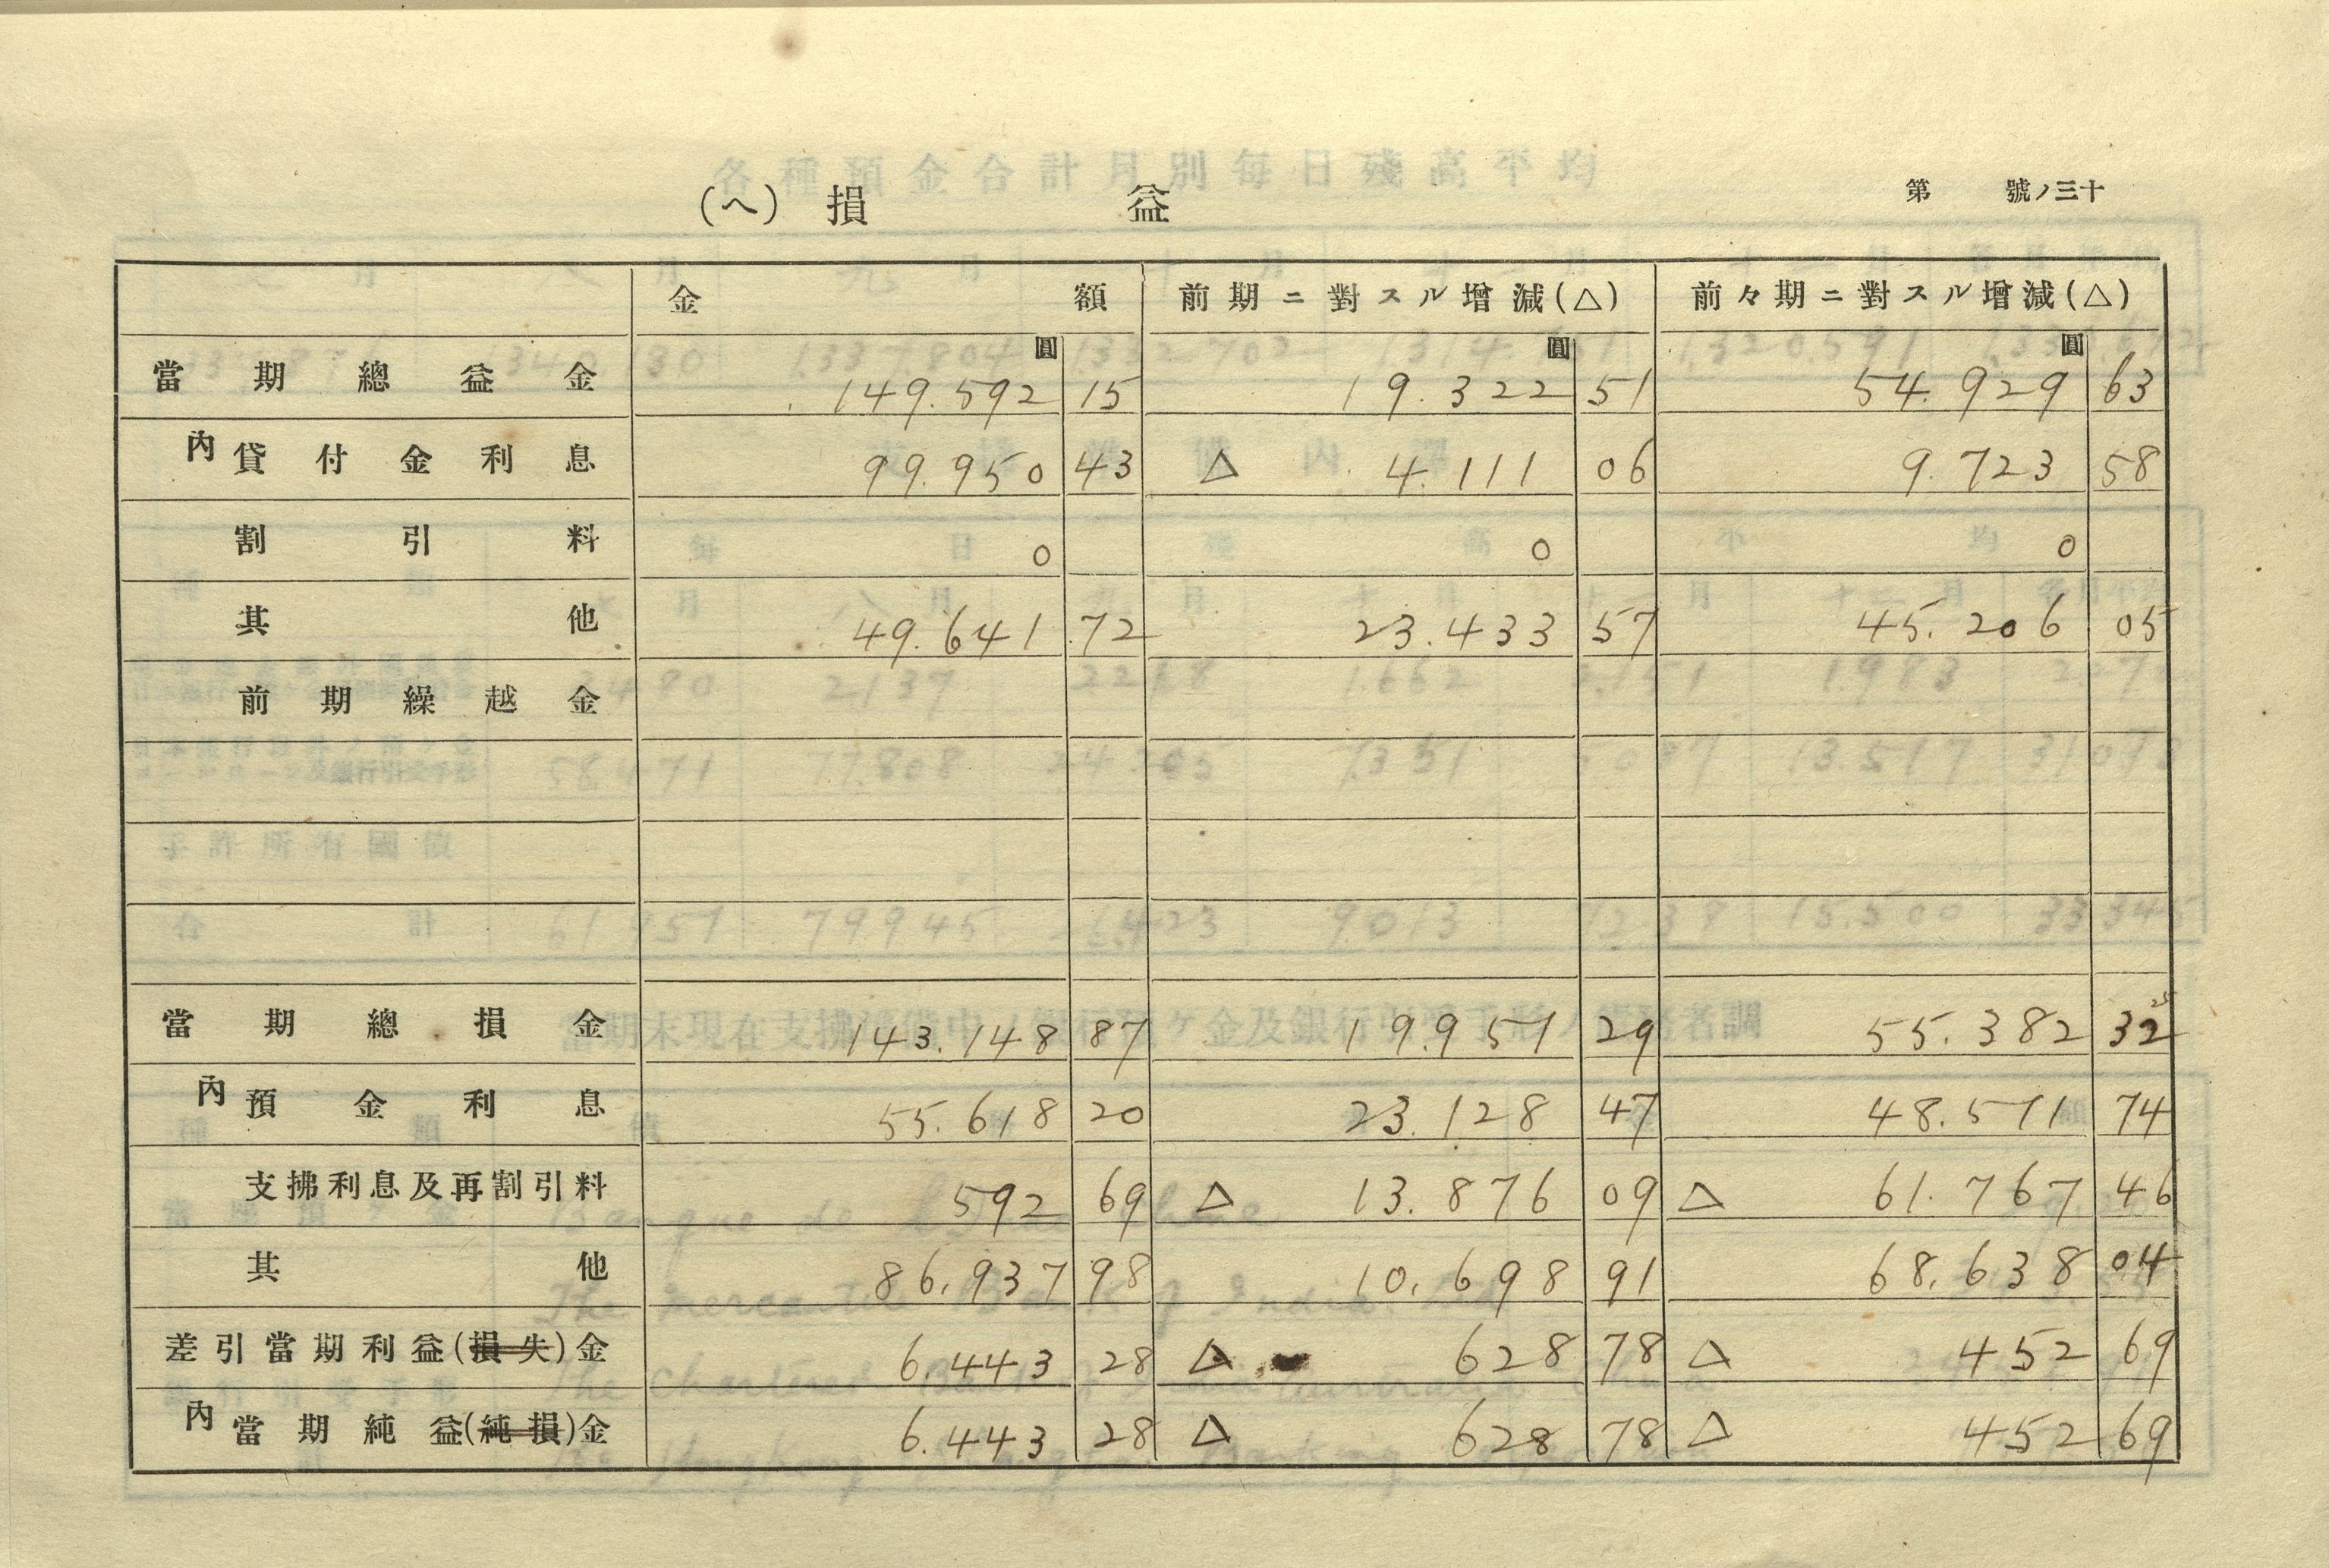 (ヘ) 損 益
第 號ノ三十
金 額 前期ニ對スル增減(△) 前々期ニ對スル增減(△)
圓 圓 圓
當期總益金 149.592 15 19.322 51 54.929 63
內 貸付金利息 99.950 43 △ 4.111 06 9.723 58
割引料 0 0 0
其他 49.641 72 23.433 57 45.206 05
前期繰越金
當期總損金 143.148 87 19.951 29 55.382 32
內 預金利息 55.618 20 23.128 47 48.511 74
支拂利息及再割引料 592 69 △ 13.876 09 △ 61.767 46
其他 86.937 98 10.698 91 68.638 04
差引當期利益(損失)金 6.443 28 △ 628 78 △ 452 69
內 當期純益(純損)金 6.443 28 △ 628 78 △ 452 69